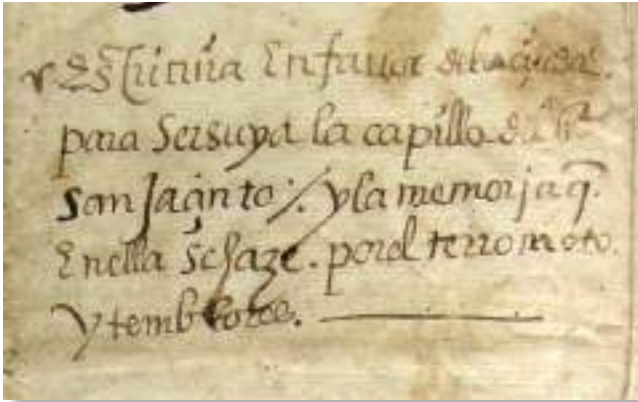 escritura En fauor de la ciudad.
para Ser suya la capilla de
San Jacinto ./. y la memorja q.
Enella Se haze. por el terromoto.
Y temblores.